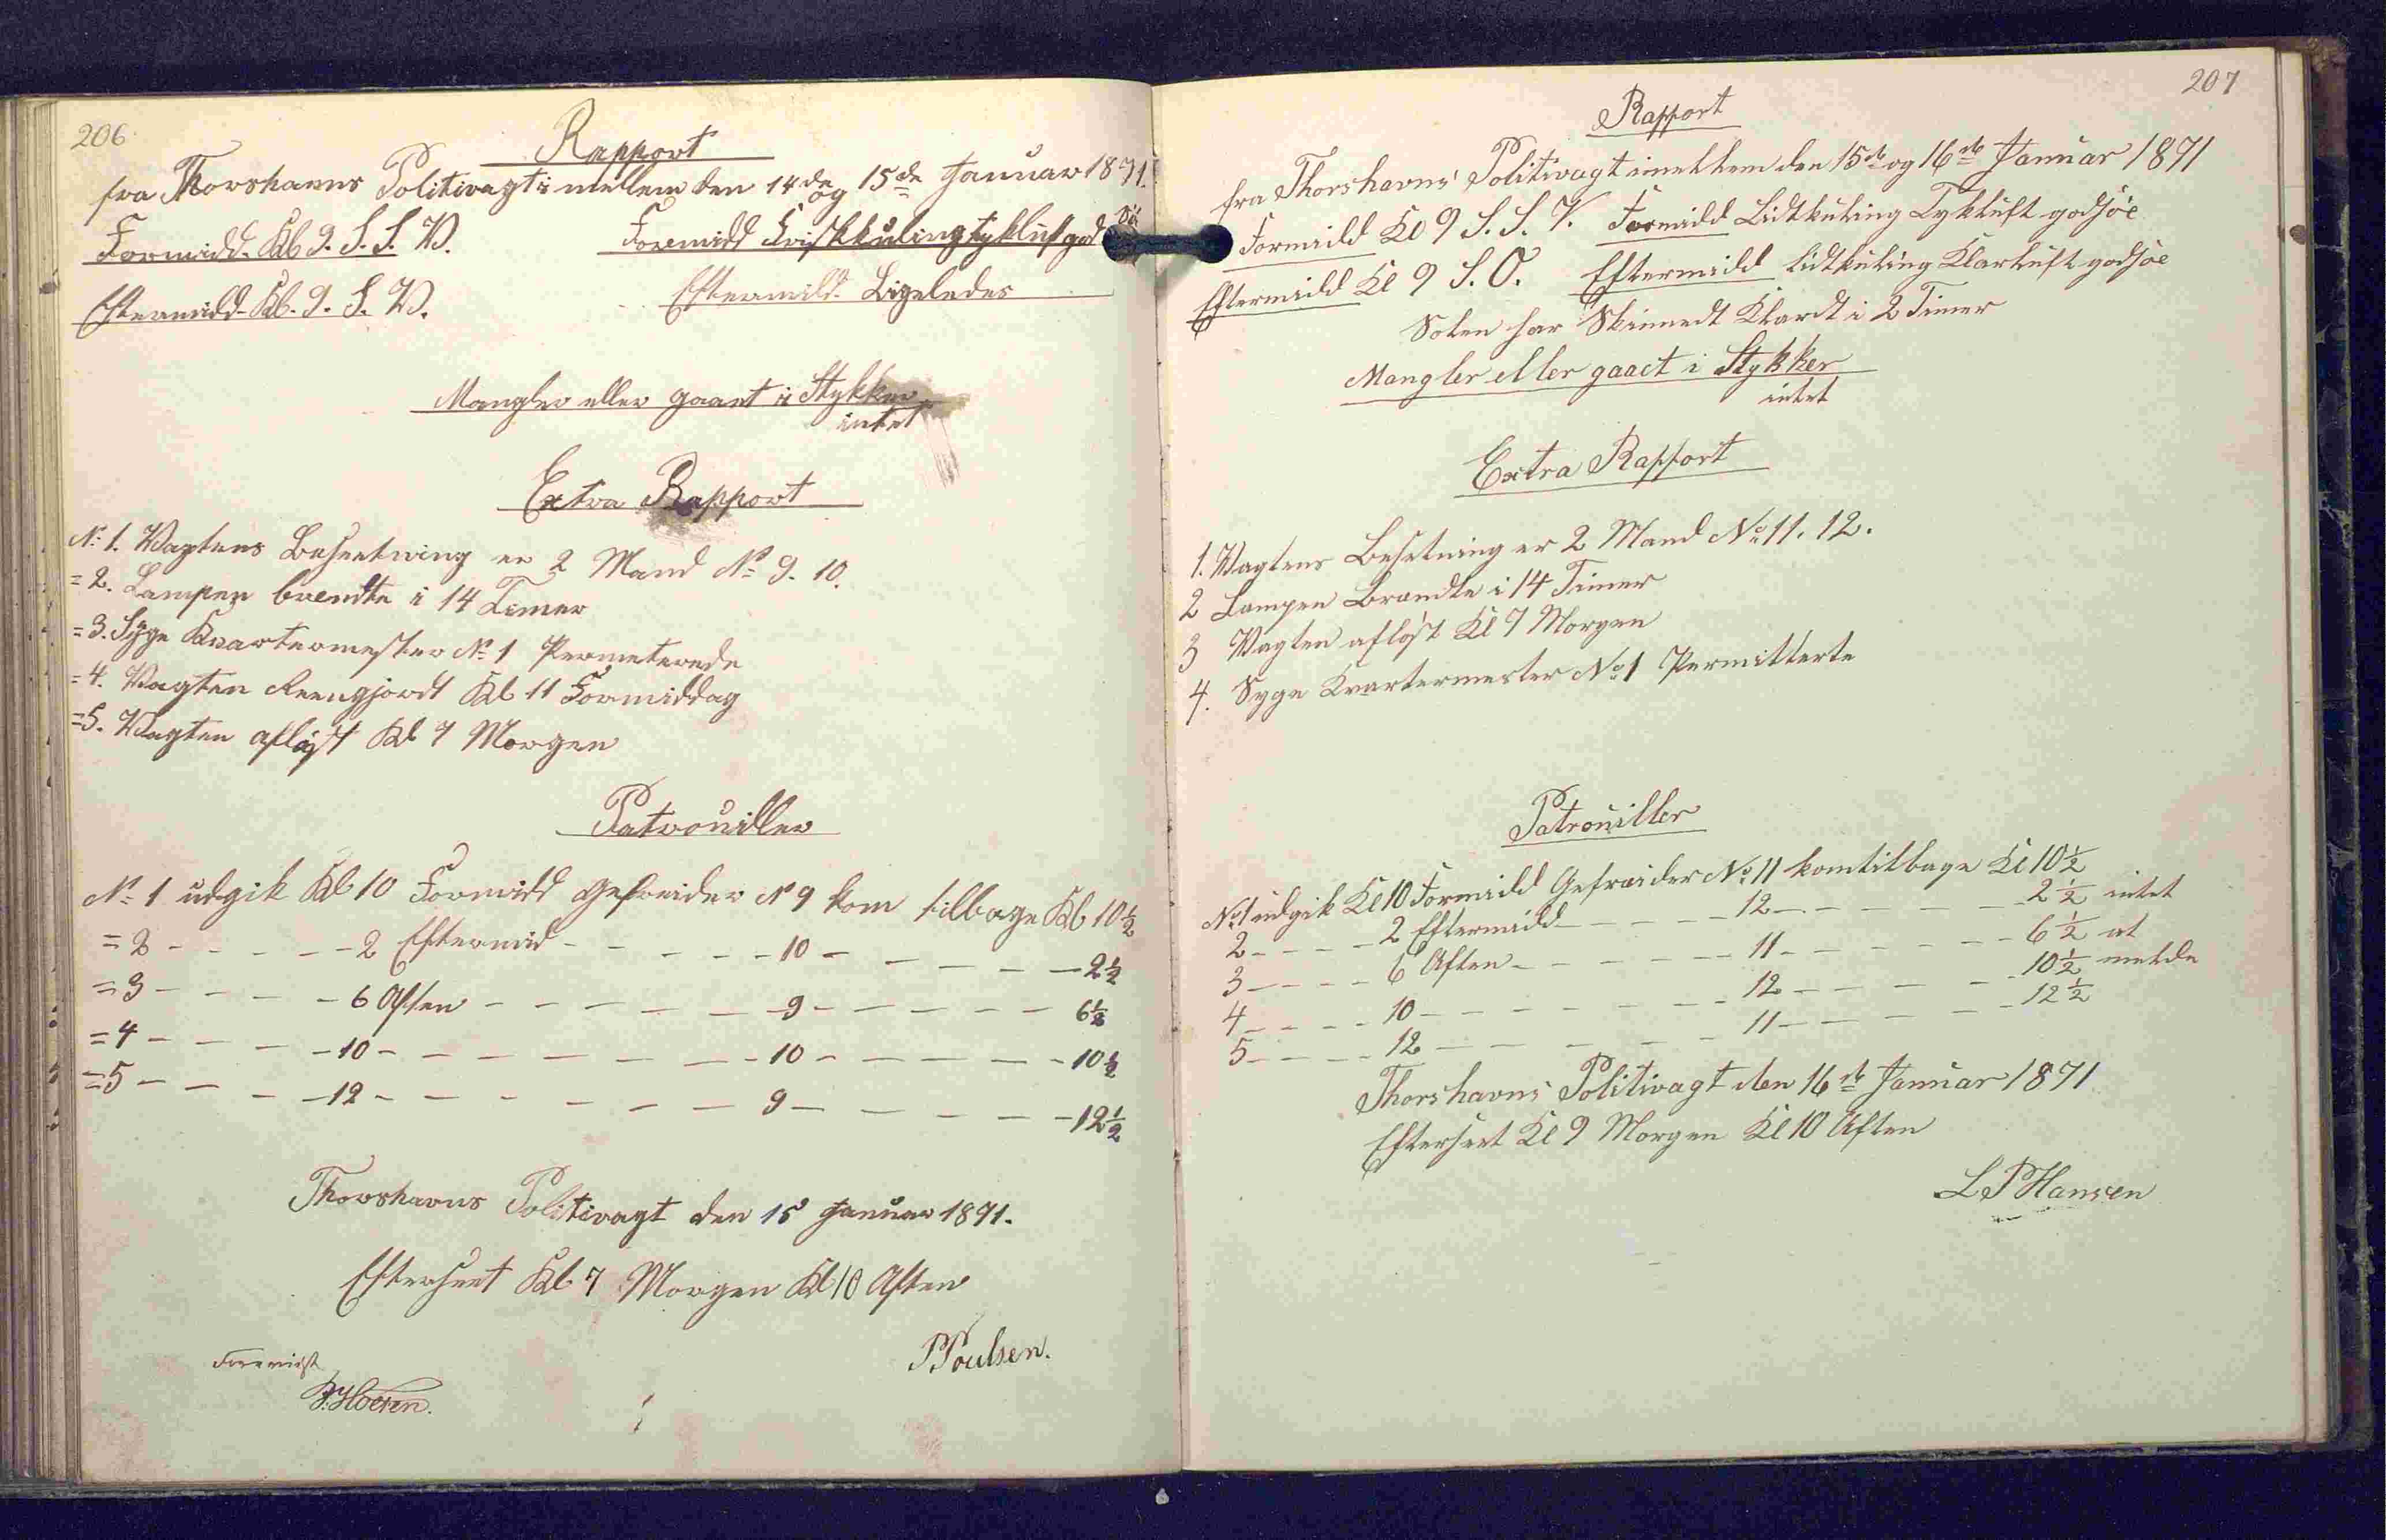 206
Rapport
fra Thorshavns Politivagt imellem den 14de og 15de Januar 1871.
Formidd. Kl. 9. S. S. V. Formidd Friskkuling tykluft god Sø
Eftermidd. Kl. 9. S. V. Eftermidd. Ligeledes
Mangler eller gaaet i Stykker
intet
Extra Rapport
No 1. Vagtens Besætning er 2 Mand No 9. 10.
= 2. Lampen brendte i 14 Timer
= 3. Syge Kvartermester No 1 Permeterede
= 4. Vagten Reengjordt Kl 11 Formiddag
= 5. Vagten afløst Kl 7 Morgen
Patrouiller
No 1 udgik Kl 10 Formidd Gefreider No 9 kom tilbage Kl 10½
= 2 - - - - - 2 Eftermid - - - - - 10 - - - - - - 2½
= 3 - - - - - 6 Aften - - - - - - 9 - - - - - - 6½
= 4 - - - - - 10 - - - - - - - - 10 - - - - - - 10½
= 5 - - - - - 12 - - - - - - - 9 - - - - - - 12½
Thorshavns Politivagt den 15 Januar 1871.
Efterseet Kl 7 Morgen Kl 10 Aften
P Poulsen.
Forevist
207
Rapport
fra Thorshavns Politivagt imellem den 15de og 16de Januar 1871
Formidd Kl 9 S. S. V. Formidd Lidtkuling Tykluft godsøe
Eftermidd Kl 9 S. O. Eftermidd lidtkuling Klarluft godsøe
Solen har Skinnedt Klardt i 2 Timer
Mangler eller gaaet i Stykker
intet
Extra Rapport
1. Vagtens Besetning er 2 Mand No 11. 12.
2 Lampen Brændte i 14 Timer
3 Vagten afløst Kl 7 Morgen
4. Syge Kvartermester No 1 Permitterte
Patrouiller
No 1 udgik Kl 10 Formidd Gefreider No 11 komtilbage Kl 10½
2 - - - - 2 Eftermidd - - - - - 12 - - - - - - 2½ intet
3 - - - - 6 Aften - - - - - - 11 - - - - - - 6½ at
4 - - - - 10 - - - - - - - 12 - - - - - 10½ melde
5 - - - - 12 - - - - - - 11 - - - - - 12½
Thorshavns Politivagt den 16de Januar 1871
Efterseet Kl 9 Morgen Kl 10 Aften
L P Hansen